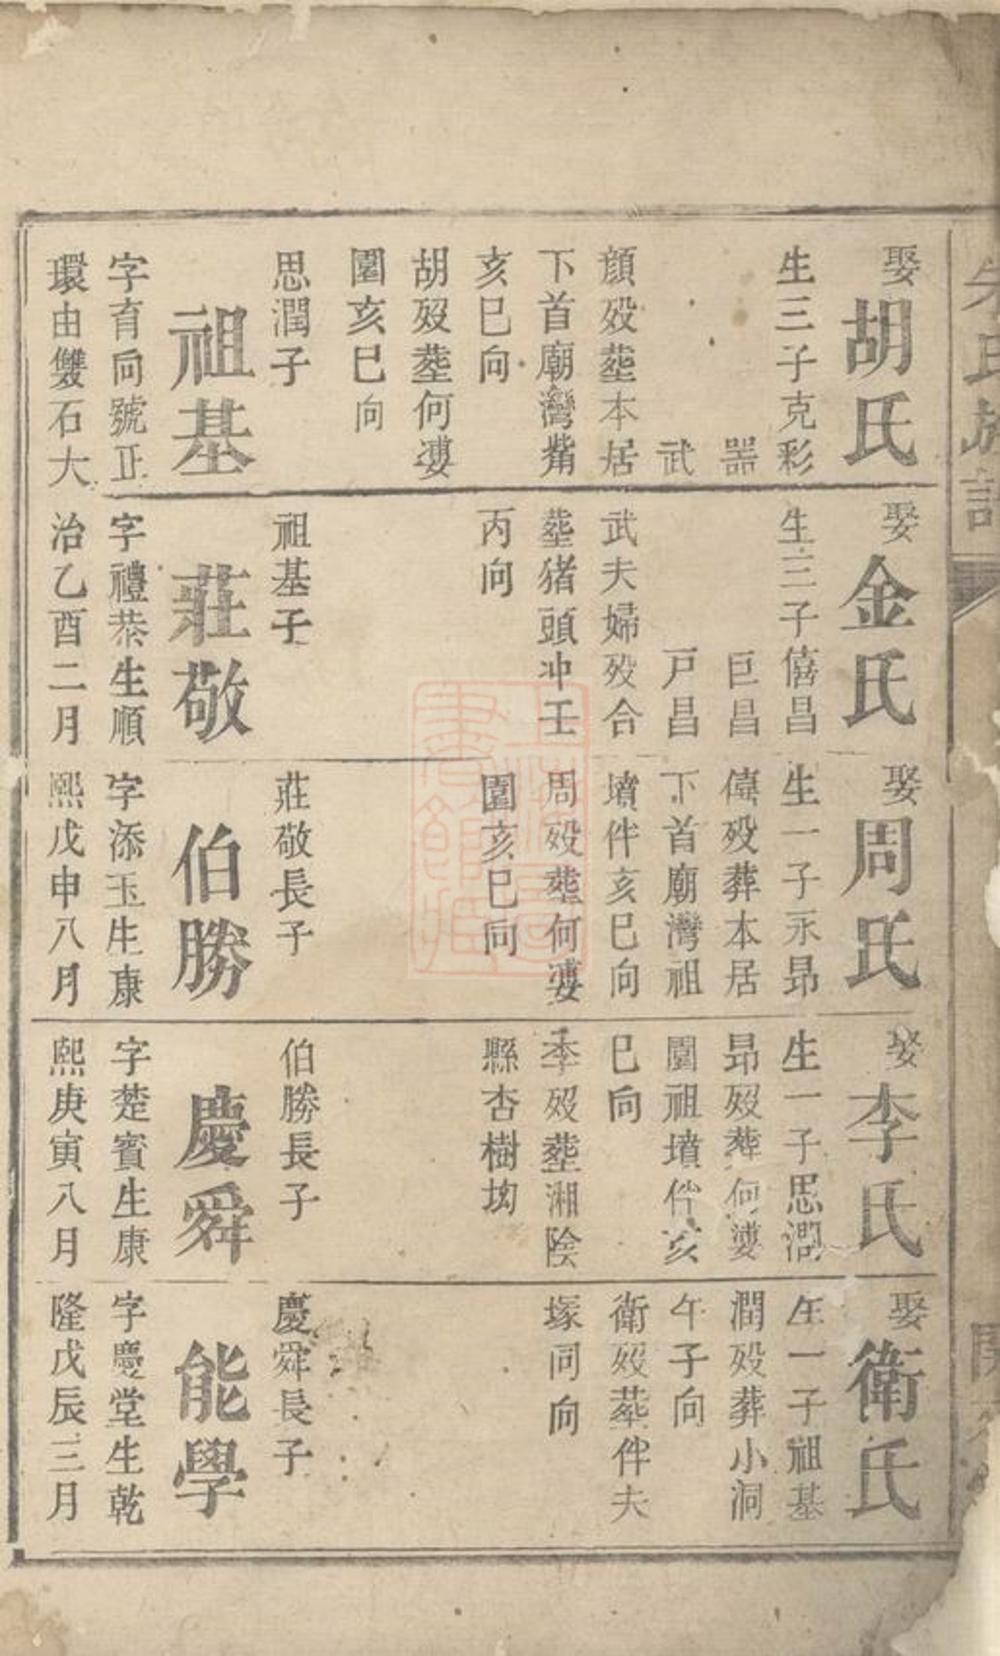 朱氏族譜
娶
胡氏
生三子克彩
器
武
顏歿塟本居
下首廟灣觜
亥巳向
胡歿塟何婆
園亥巳向
思潤子
祖基
字育向號正
環由雙石大
娶
金氏
生三子僖昌
巨昌
戸昌
武夫婦歿合
塟猪頭冲壬
丙向
祖基子
莊敬
字禮恭生順
治乙酉二月
娶
周氏
生一子永昂
僡歿葬本居
下首廟灣祖
墳伴亥巳向
周歿塟何婆
園亥巳向
莊敬長子
伯勝
字添玉生康
熙戊申八月
娶
李氏
生一子思潤
昂歿葬何婆
園祖墳伴亥
巳向
李歿塟湘陰
縣杏樹坳
伯勝長子
慶舜
字楚賓生康
熙庚寅八月
娶
衛氏
生一子祖基
潤歿葬小洞
午子向
衛歿塟伴夫
塚同向
慶舜長子
能學
字慶堂生乾
隆戊辰三月
上海圖書館藏